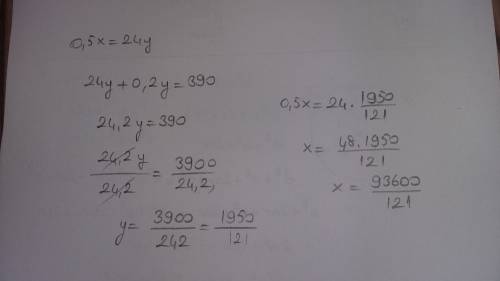 0,5x=24y
24y+0,2y=390
24,2y=390
24,2y/24,2 = 3900/24,2,
y= 3900/242 = 1950/121
0,5x=24. 1950/121
x= 48.1950/121
x= 93600/121